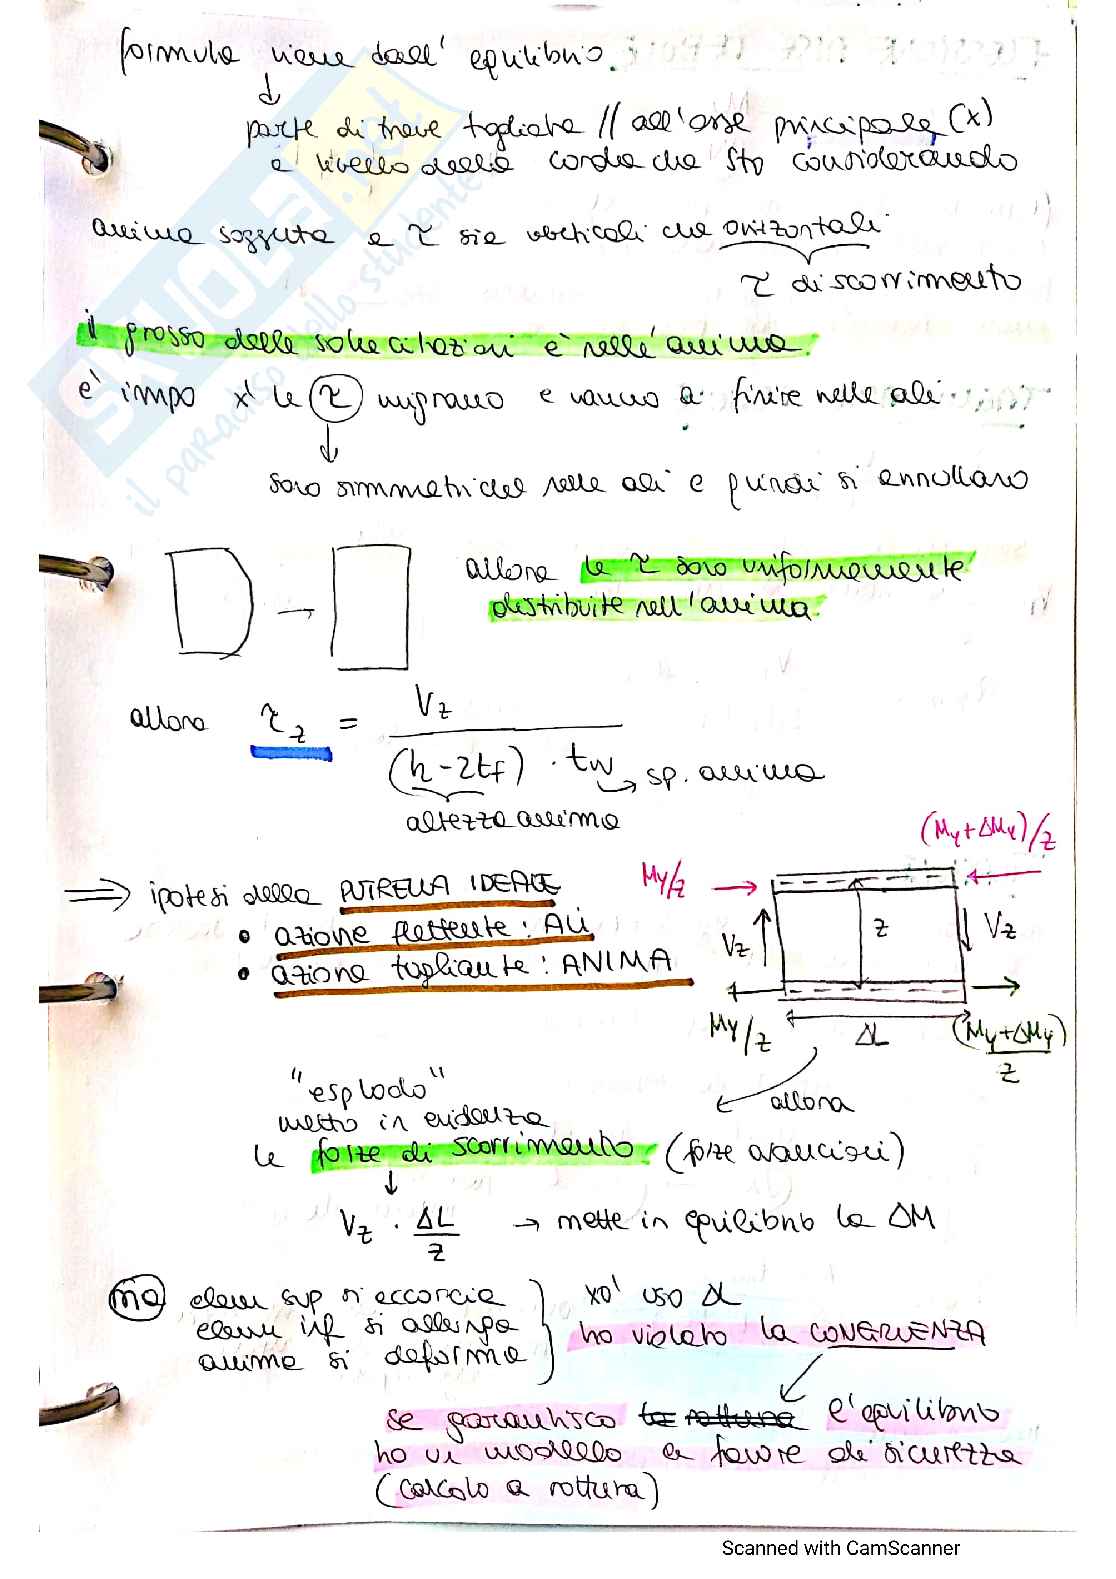 formula viene dall' equilibrio.
↓
parte di trave tagliata // all'asse principale (x)
a livello della corda che sto considerando
anima soggetta a τ sia verticali che orizzontali
τ di scorrimento
il grosso delle sollecitazioni è nell'anima.
è impo x' le τ migrano e vanno a finire nelle ali.
↓
sono simmetriche nelle ali e quindi si annullano
→ allora le τ sono uniformemente
distribuite nell'anima.
allora τz = Vz / (h-2tf) · tw → sp. anima
altezza anima
(My+ΔMy)/z
⇒ ipotesi della PUTRELLA IDEALE
My/z
• azione flettente: ALI
Vz z Vz
• azione tagliante: ANIMA
My/z ΔL (My+ΔMy)/z
"esplodo"
metto in evidenza
← allora
le forze di scorrimento. (forze arancioni)
↓
Vz · ΔL/z → mette in equilibrio la ΔM
ma elem sup si accorcia
elem inf si allunga
anima si deforma
xo' uso ΔL
ho violato la CONGRUENZA
se garantisco la rottura l'equilibrio
ho un modello a favore di sicurezza
(calcolo a rottura)
SKUOLA.net
il paradiso dello studente
Scanned with CamScanner